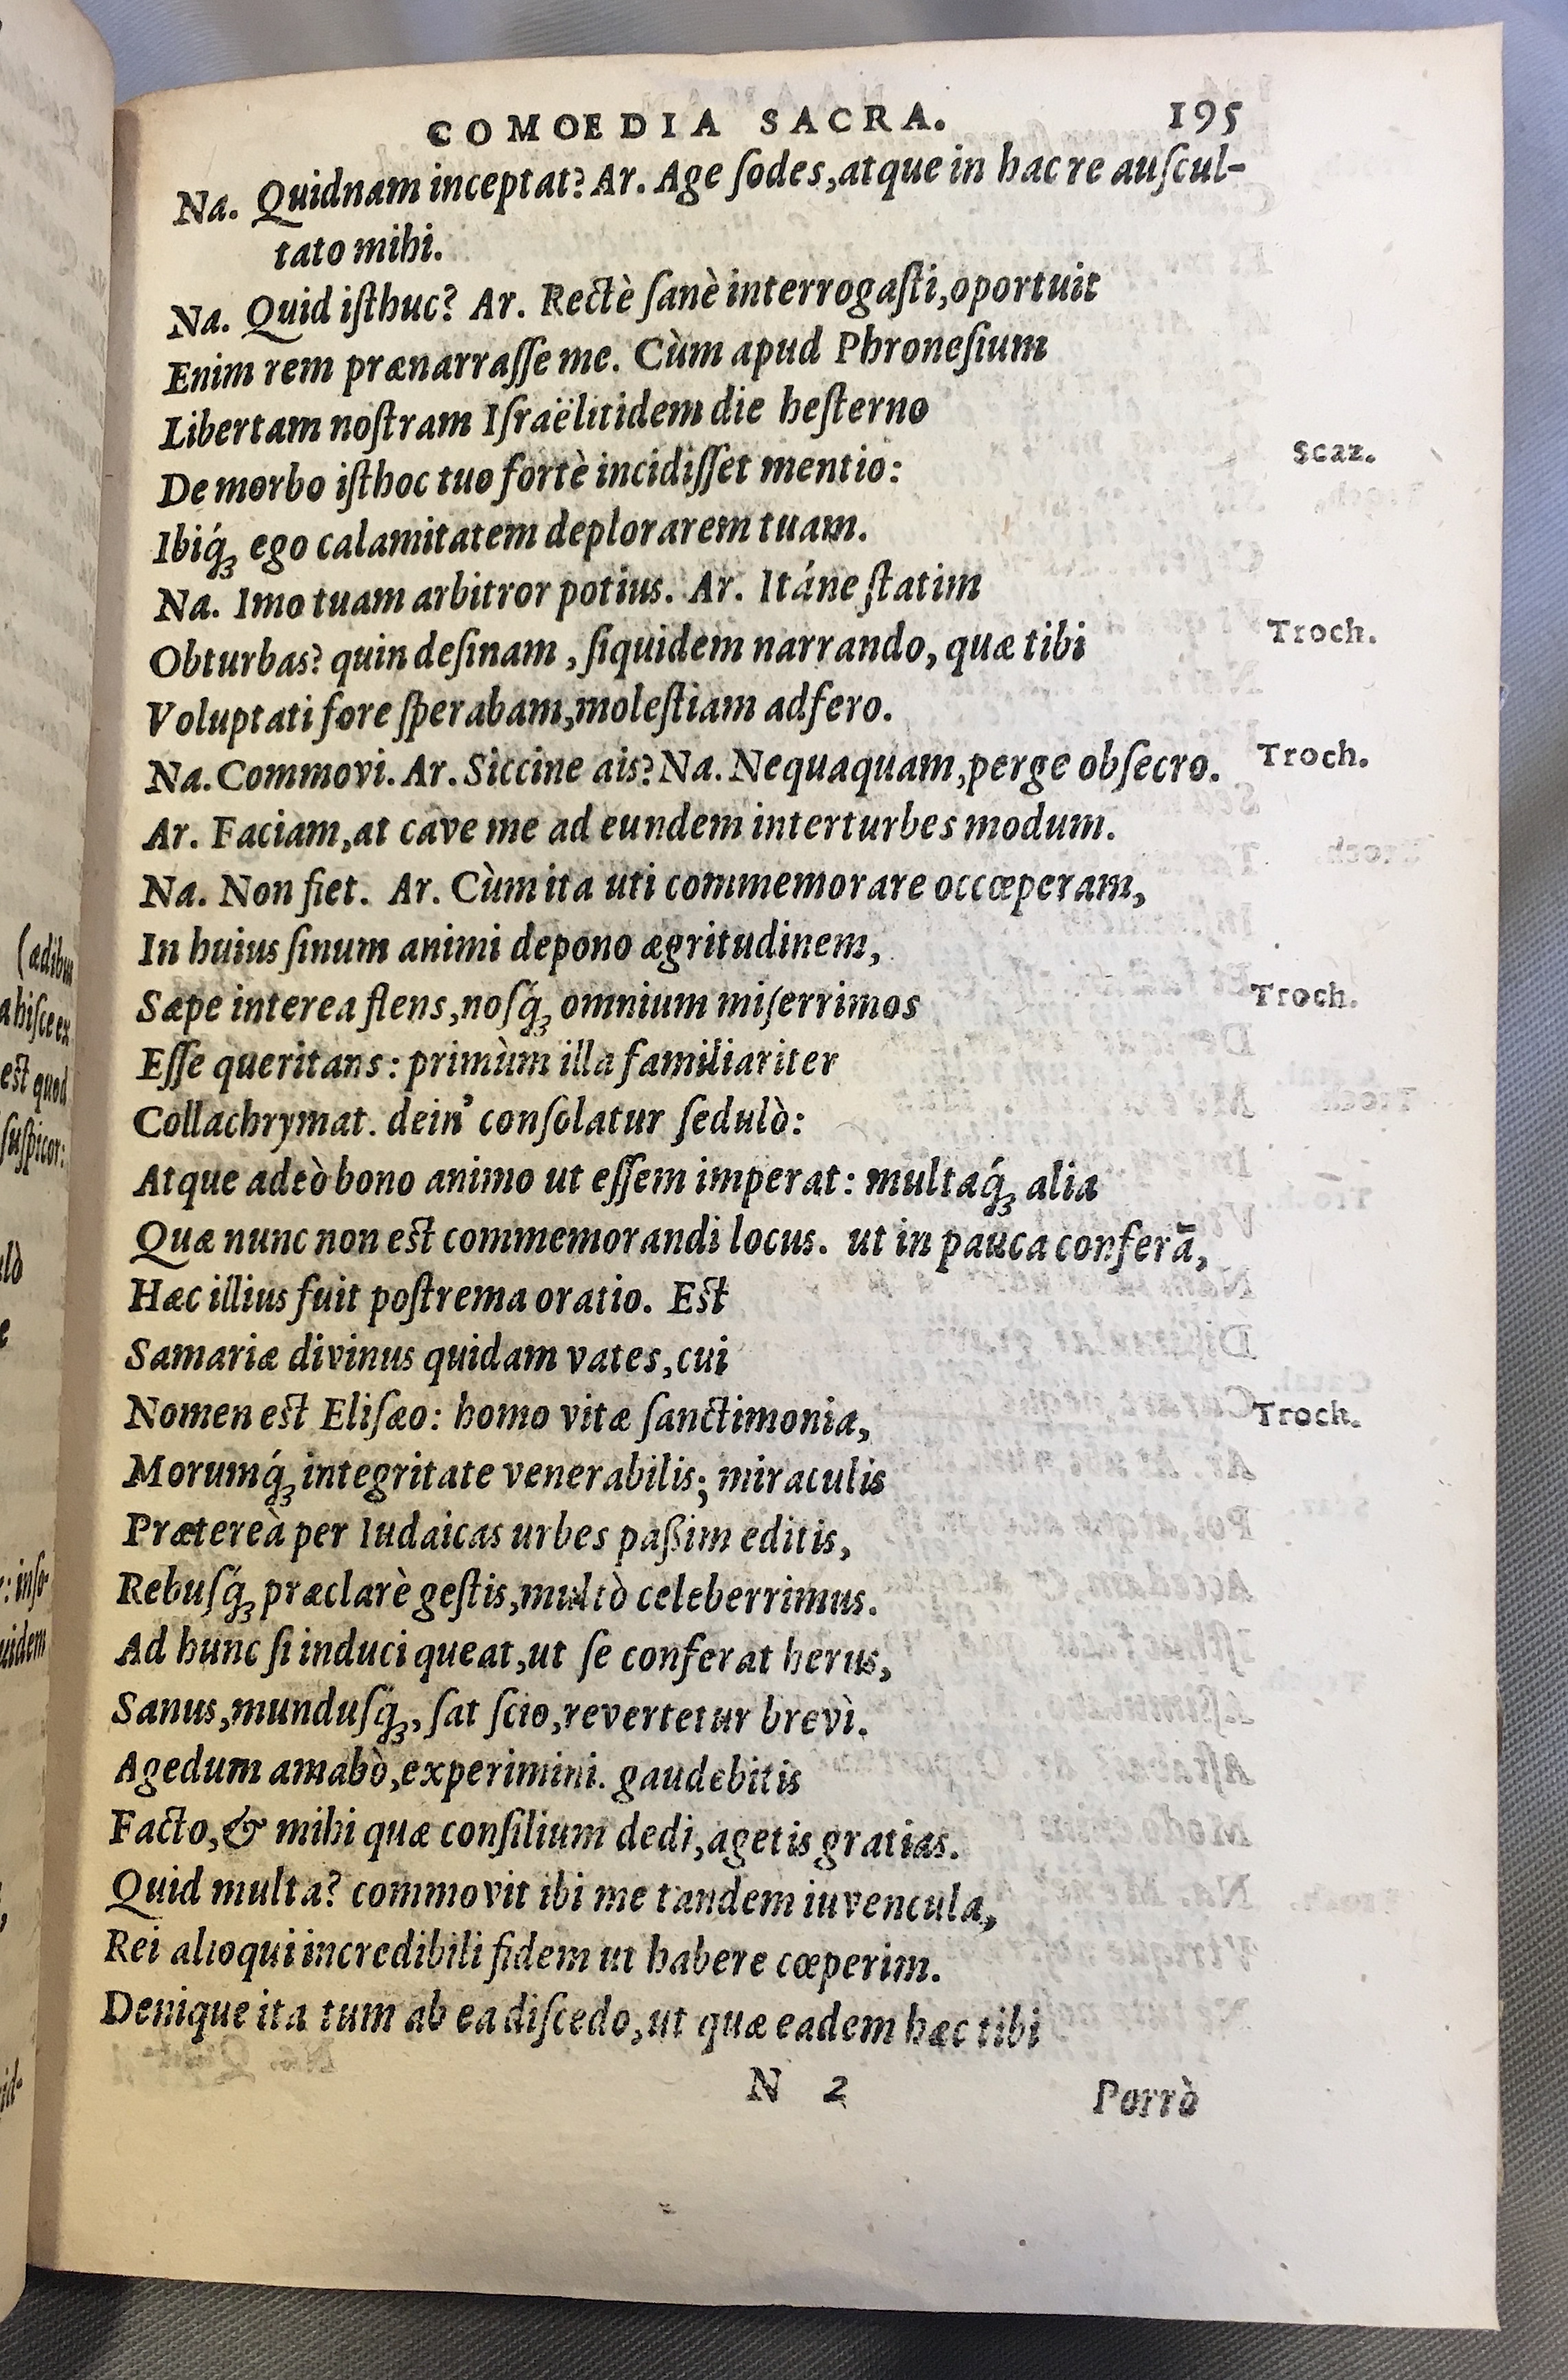 COMOEDIA SACRA. 195
Na. Quidnam inceptat? Ar. Age ſodes, atque in hac re auſcul-
tato mihi.
Na. Quid iſthuc? Ar. Rectè ſanè interrogaſti, oportuit
Enim rem prænarraſſe me. Cùm apud Phroneſium
Libertam noſtram Iſraëlitidem die heſterno
De morbo iſthoc tuo fortè incidiſſet mentio: Scaz.
Ibiq́ꝫ ego calamitatem deplorarem tuam.
Na. Imo tuam arbitror potius. Ar. Itáne ſtatim
Obturbas? quin deſinam, ſiquidem narrando, quæ tibi Troch.
Voluptati fore ſperabam, moleſtiam adfero.
Na. Commovi. Ar. Siccine ais? Na. Nequaquam, perge obſecro. Troch.
Ar. Faciam, at cave me ad eundem interturbes modum.
Na. Non fiet. Ar. Cùm ita uti commemorare occœperam,
In huius ſinum animi depono ægritudinem,
Sæpe interea flens, noſq́ꝫ omnium miſerrimos Troch.
Eſſe queritans: primùm illa familiariter
Collachrymat. dein' conſolatur ſedulò:
Atque adeò bono animo ut eſſem imperat: multaq́ꝫ alia
Quæ nunc non est commemorandi locus. ut in pauca conferã,
Hæc illius fuit poſtrema oratio. Est
Samariæ divinus quidam vates, cui
Nomen est Eliſæo: homo vitæ ſanctimonia, Troch.
Morumq́ꝫ integritate venerabilis; miraculis
Prætereà per Iudaicas urbes paßim editis,
Rebuſq́ꝫ præclarè geſtis, multò celeberrimus.
Ad hunc ſi induci queat, ut ſe conferat herus,
Sanus, munduſq́ꝫ, ſat ſcio, revertetur brevì.
Agedum amabò, experimini. gaudebitis
Facto, & mihi quæ conſilium dedi, agetis gratias.
Quid multa? commovit ibi me tandem iuvencula,
Rei alioqui incredibili fidem ut habere cœperim.
Denique ita tum ab ea diſcedo, ut quæ eadem hæc tibi
N 2 Porrò
(ædibus
ahiſce ex
est quod
ſuſpicor: